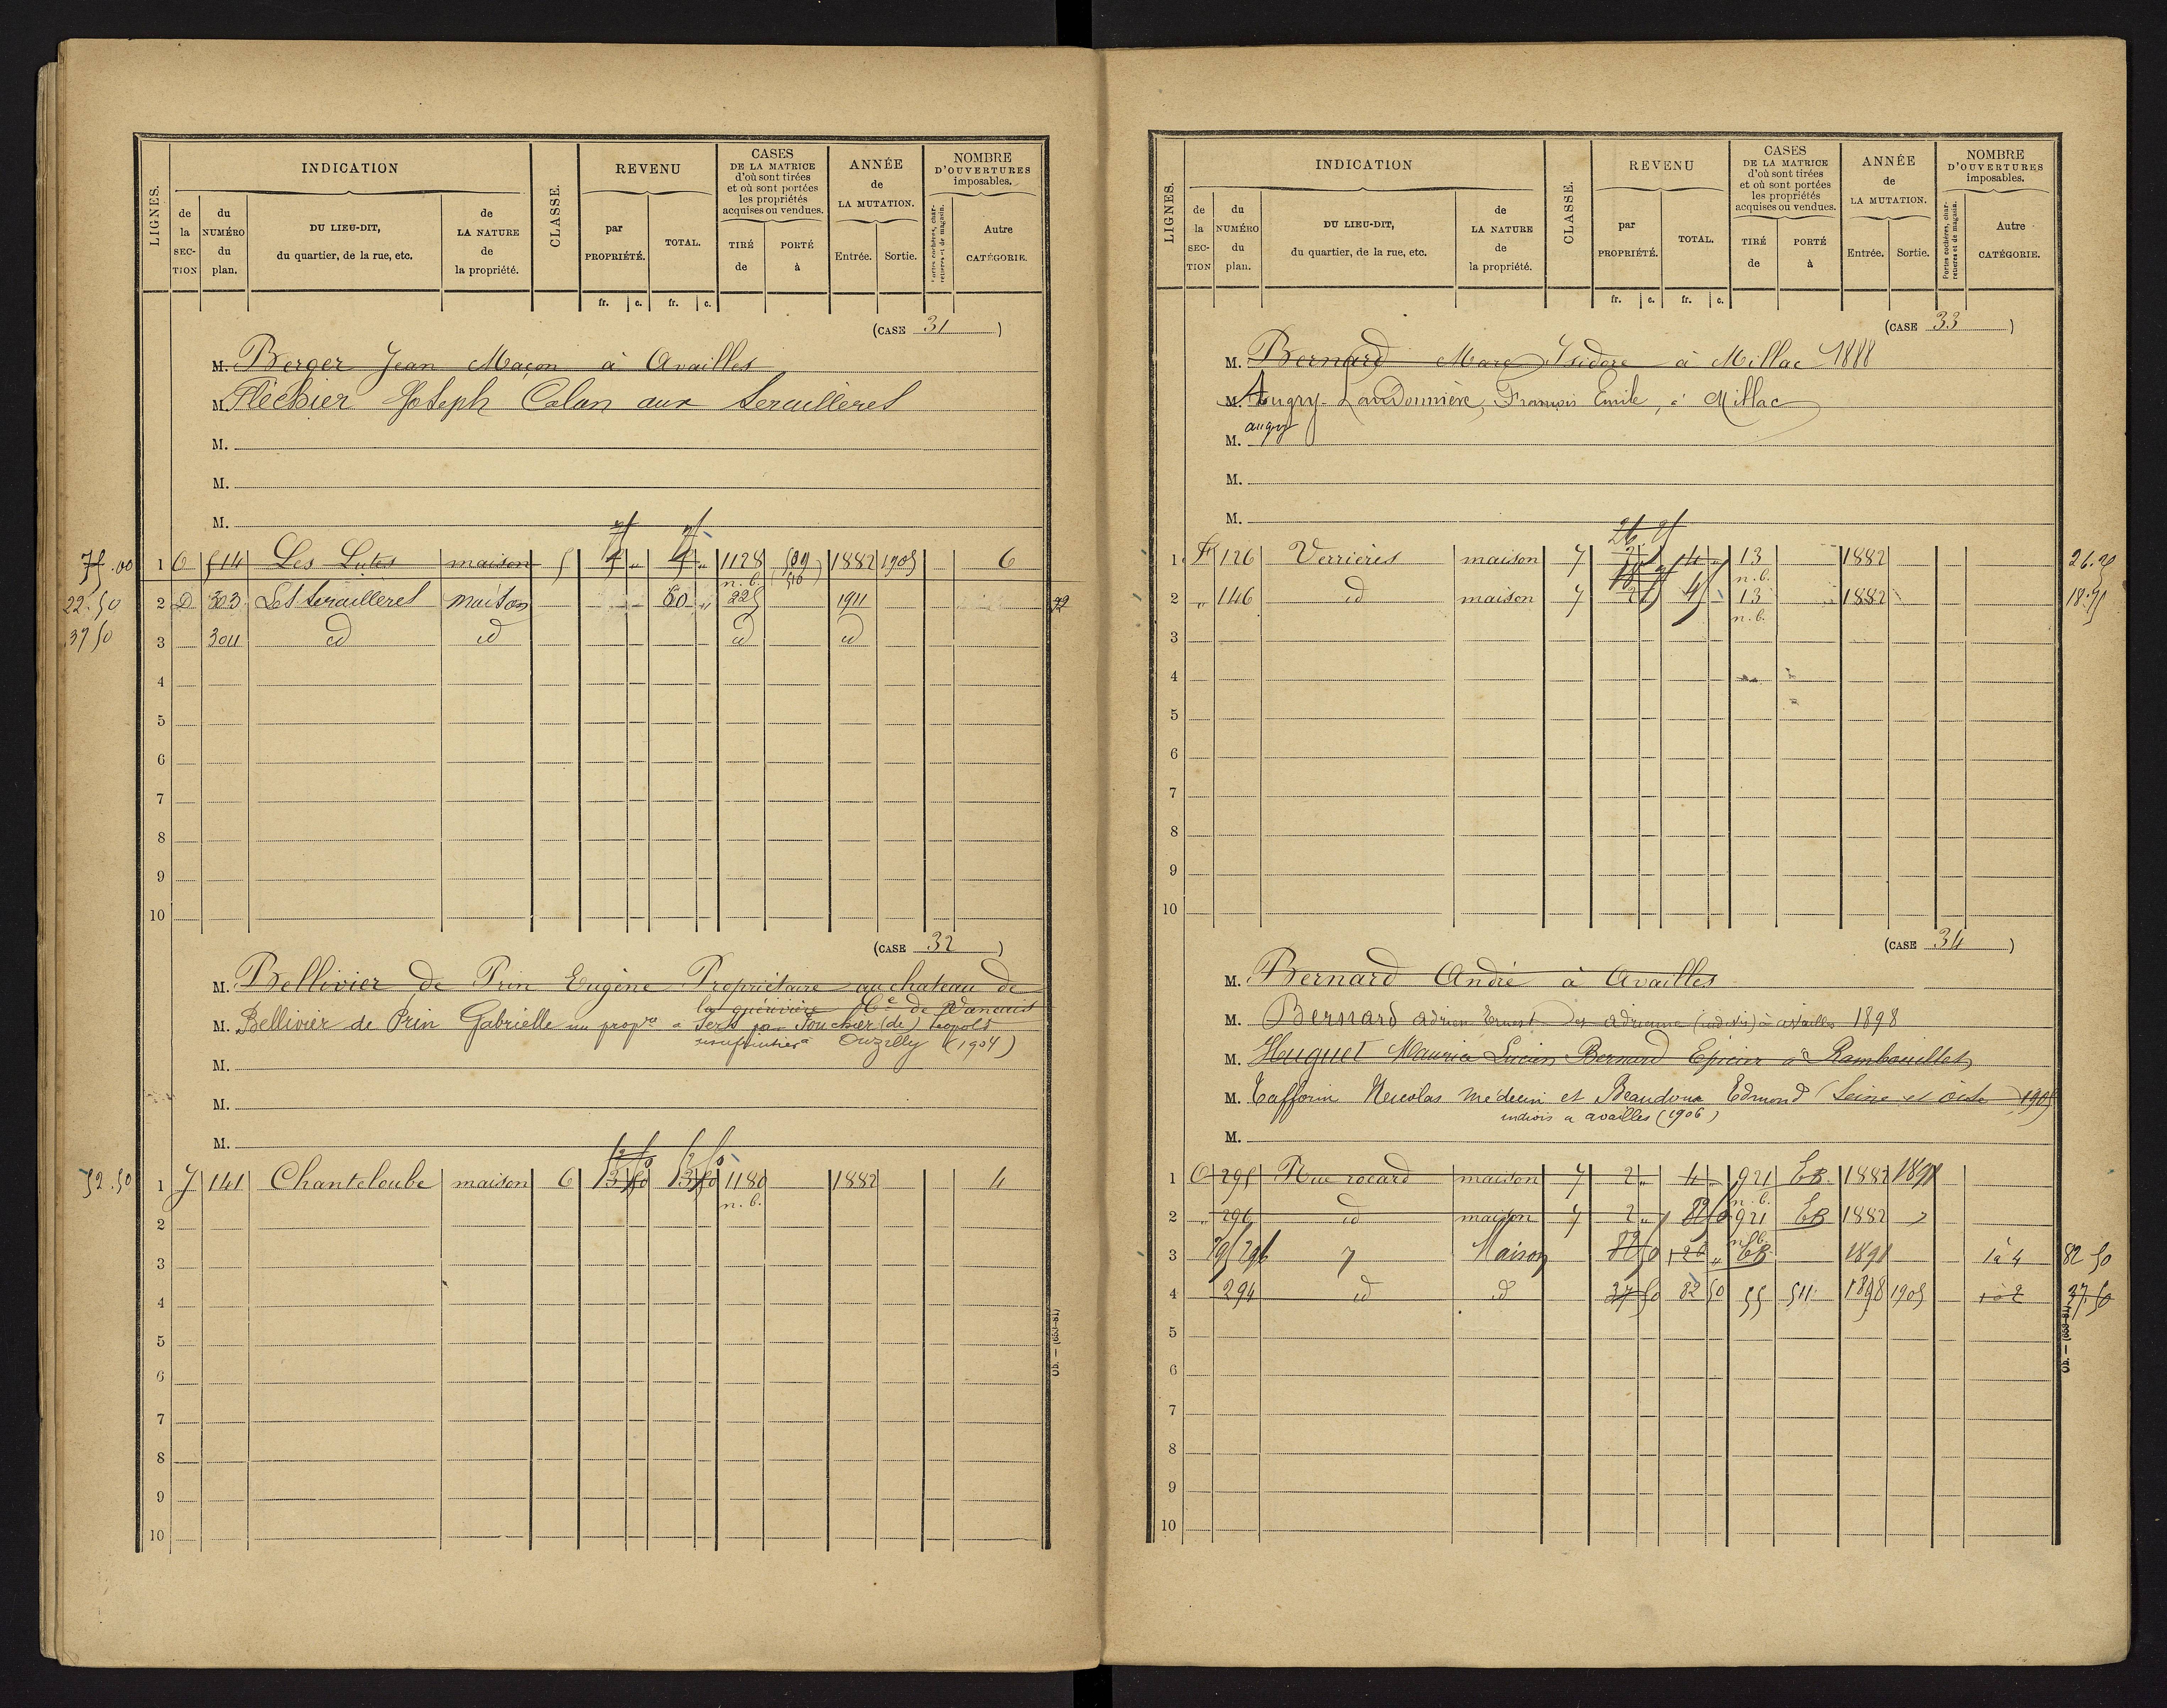 LIGNES.
INDICATION
de la SECTION
du NUMÉRO du plan.
DU LIEU-DIT, du quartier, de la rue, etc.
de LA NATURE de la propriété.
CLASSE.
REVENU
par PROPRIÉTÉ.
TOTAL.
fr. c. fr. c.
CASES DE LA MATRICE d'où sont tirées et où sont portées les propriétés acquises ou vendues.
TIRÉ de
PORTÉ à
ANNÉE de LA MUTATION.
Entrée. Sortie.
NOMBRE D'OUVERTURES imposables.
Portes cochères, charretières et de magasin.
Autre CATÉGORIE.
(CASE 31)
M. Berger Jean Maçon à Availles
M. Fléchier Joseph Colon aux
M.
M.
M.
75.00 1 514 Les maison 5 1128 509 1882 1905 6
n. b. 510
22.50 2 D 303 maison 60 " 225 1911
37 50 3 304 id id id id
4
5
6
7
8
9
10
(CASE 32)
M. Bellivier de Prin Eugène Propriétaire au chateau de
la Cne de
M. Bellivier de Prin Gabrielle nu propre a Sers par Fouchier (de) Leopold
usufruitier à Ouzilly (1904)
M.
M.
M.
52.50 1 J 141 Chanteloube maison 6 13 50 13 50 1180 1882 4
n. b.
2
3
4
5
6
7
8
9
10
Ob. — (653-81)
LIGNES.
INDICATION
de la SECTION
du NUMÉRO du plan.
DU LIEU-DIT, du quartier, de la rue, etc.
de LA NATURE de la propriété.
CLASSE.
REVENU
par PROPRIÉTÉ.
TOTAL.
fr. c. fr. c.
CASES DE LA MATRICE d'où sont tirées et où sont portées les propriétés acquises ou vendues.
TIRÉ de
PORTÉ à
ANNÉE de LA MUTATION.
Entrée. Sortie.
NOMBRE D'OUVERTURES imposables.
Portes cochères, charretières et de magasin.
Autre CATÉGORIE.
(CASE 33)
M. Bernard Marc Isidore à Millac 1888
M. Augry-Landonnière, François Emile, à Millac
M. augry
M.
M.
26 25
1 F 126 Verrières maison 7 13 1882 26.25
n. b.
2 " 146 id maison 7 13 1882 18.75
n. b.
3
4
5
6
7
8
9
10
(CASE 34)
M. Bernard André à Availles
M. Bernard adrien Ernest adrienne (indivis) à availles 1898
M. Huguet Maurice Lucien Bernard Epicier à Rambouillet
M. Tafforin médecin et Edmond (Seine et Oise) 1905
indivis a availles (1906)
M.
1 295 Rue rocard maison 7 2 " 4 " 921 1882 1891
n. b.
2 " 296 id maison 7 2 " 921 1882 "
n. b.
3 295 296 Maison 82 50 1891 1 à 4 82 50
4 294 id id 37 50 82 50 55 511 1898 1905 1 à 2 37.50
5
6
7
8
9
10
Ob. — (653-81)